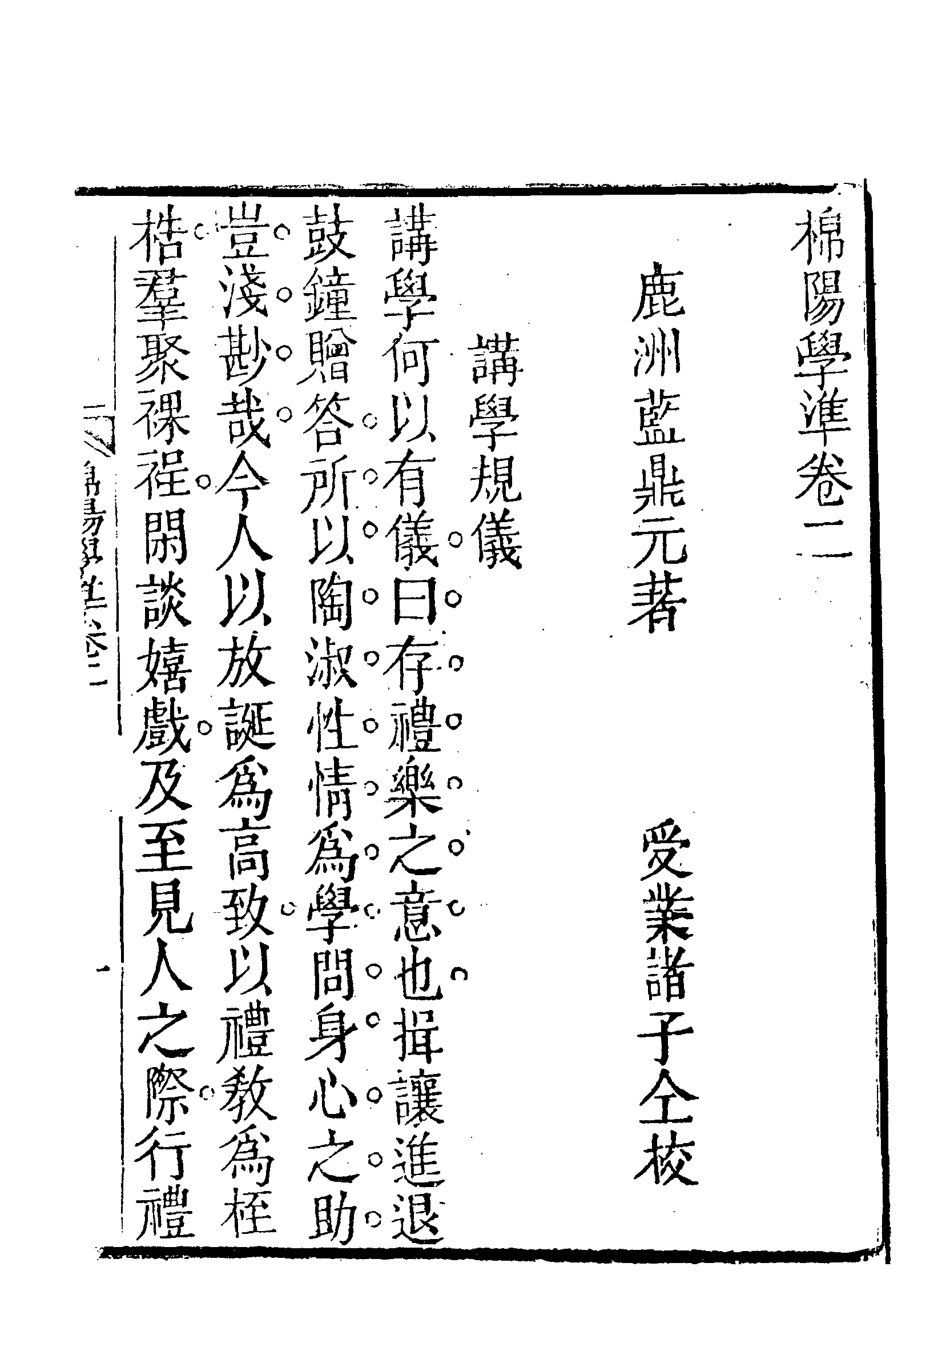 棉陽學準卷二
鹿洲藍鼎元著　受業諸子仝校
講學規儀
講學何以有儀曰存禮樂之意也揖讓進退
鼓鐘贈答所以陶淑性情為學問身心之助
豈淺尠哉今人以放誕為高致以禮教為桎
梏羣聚裸裎閑談嬉戲及至見人之際行禮
棉陽學準卷二
一